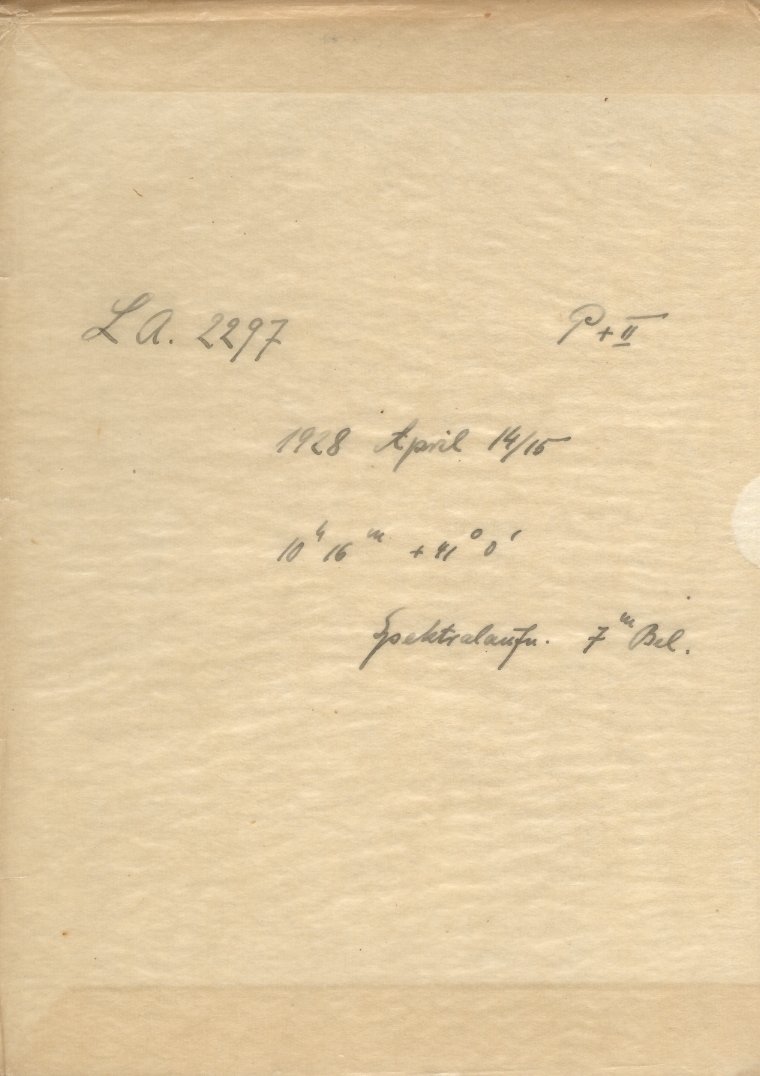 L A. 2297 P + II
1928 April 14/15
10ʰ 16ᵐ + 41° 0'
Spektralaufn. 7ᵐ Bel.